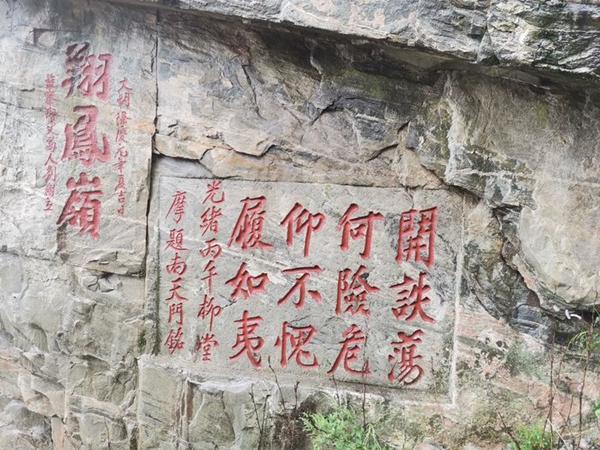 開詄蕩
何險危
仰不愧
履如夷
光緒丙午柳堂
摩題南天門銘
大明隆慶元年夏吉日
翔鳳嶺